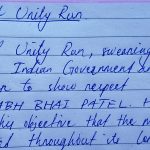 Unity Run
Unity Run, sweaning
Indian Government a
to show respect
ABH BHAI PATEL. H
his objective that the n
throughout its